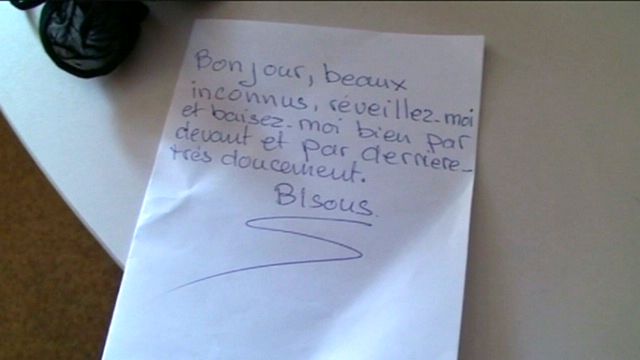 Bonjour, beaux
inconnus, réveillez-moi
et baisez-moi bien par
devant et par derrière-
très doucement.
BIsous.